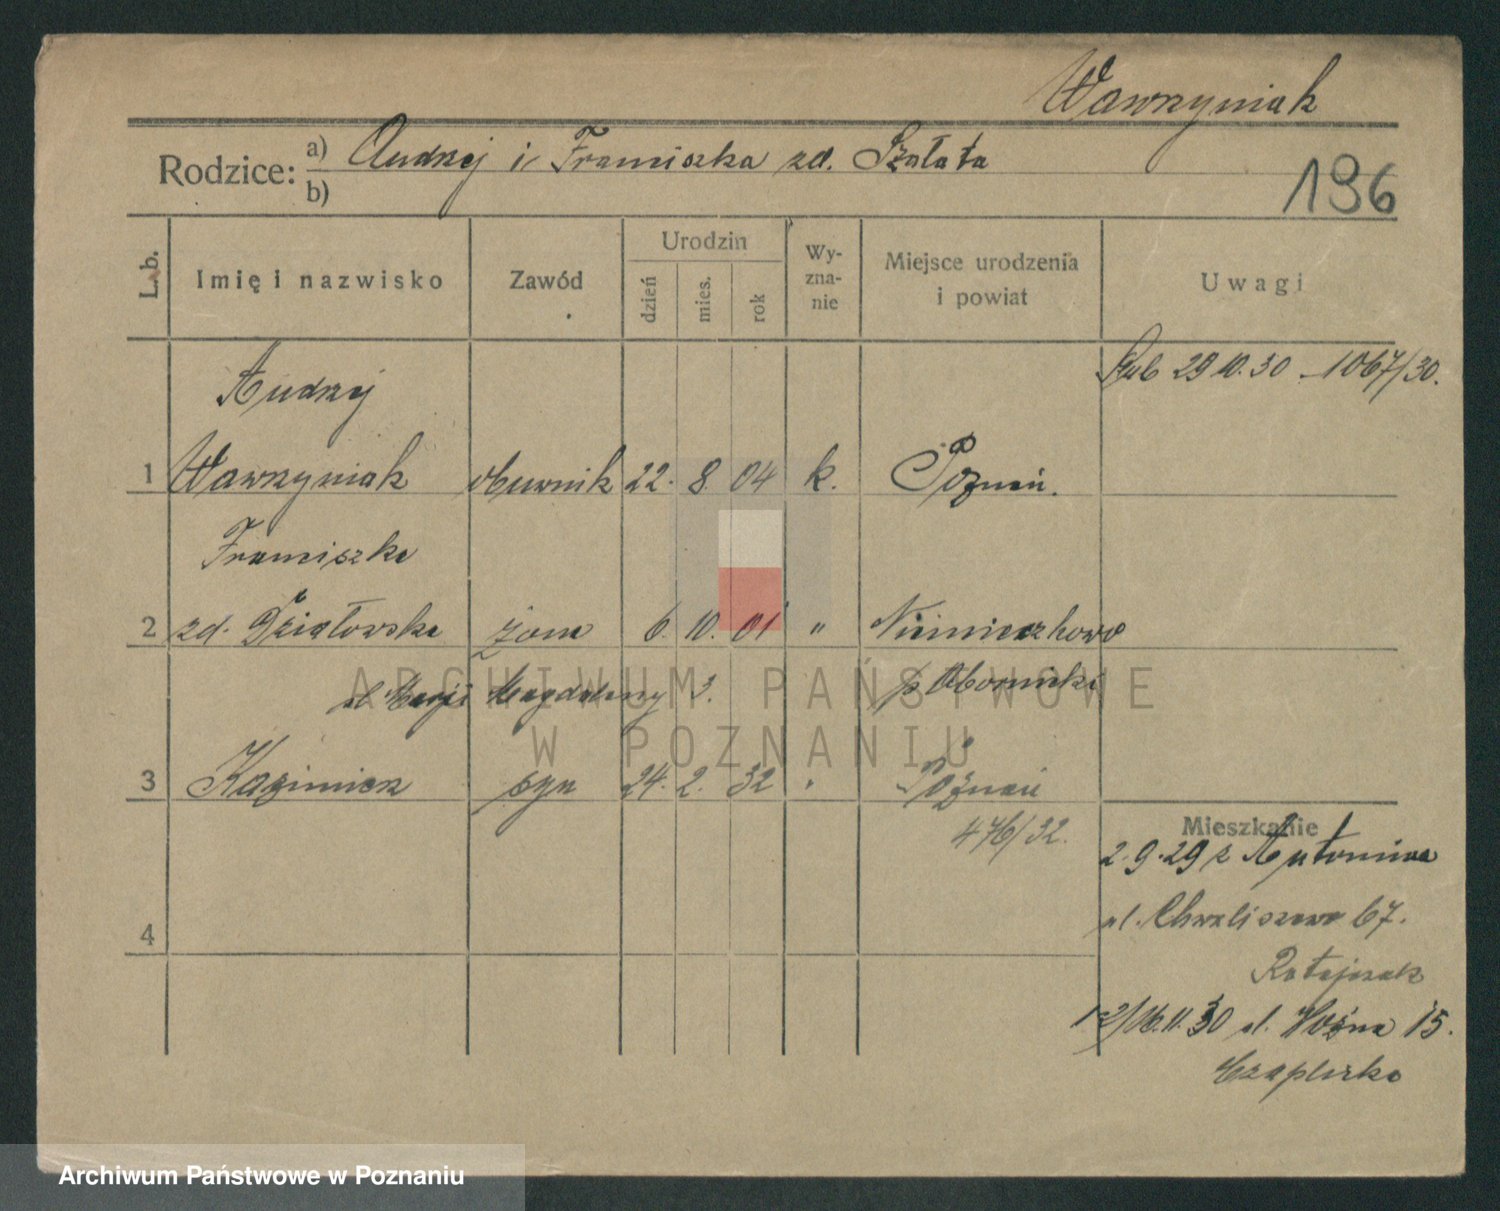 Wawrzyniak
Rodzice: a) Andrzej i Franciszka zd. Szałata
b)
196
L.b. Imię i nazwisko Zawód Urodzin dzień mies. rok Wyznanie Miejsce urodzenia i powiat Uwagi
Ślub 29 10. 30 – 1067/30.
Andrzej
1 Wawrzyniak obuwnik 22. 8. 04 k. Poznań.
Franciszka
2 zd. Działowska żona 6. 10. 01 " Niemieczkowo
ul. Marji Magdaleny 3. p. Obornicki
3 Kazimierz syn 24. 2. 32 " Poznań
476/32.
Mieszkanie
2.9.29 z Antonina
4 ul. Chwaliszewo 67.
Ratajczak
12/16.11.30 ul. Woźna 15.
Czaplicka
ARCHIWUM PAŃSTWOWE
W POZNANIU
Archiwum Państwowe w Poznaniu